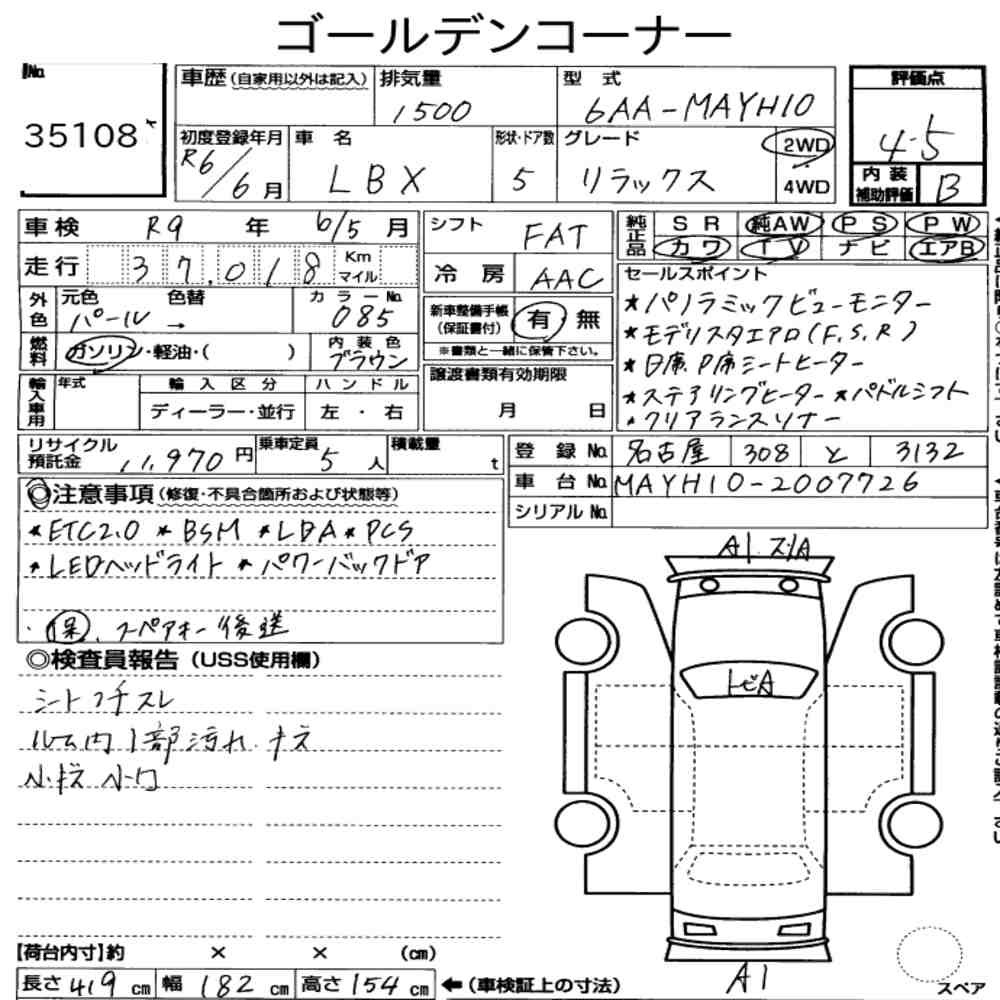 ゴールデンコーナー
No.
35108
車歴(自家用以外は記入)
排気量
1500
型式
6AA-MAYH10
評価点
4.5
初度登録年月
R6/6月
車名
LBX
形状・ドア数
5
グレード
リラックス
2WD
4WD
内装
補助評価
B
車検 R9年 6/5月
シフト
FAT
純正品
SR 純AW PS PW
カワ TV ナビ エアB
走行 37,018 Km
マイル
冷房 AAC
セールスポイント
★パノラミックビューモニター
★モデリスタエアロ(F.S.R)
★D席、P席シートヒーター
★ステアリングヒーター ★パドルシフト
★クリアランスソナー
外色
元色 色替
パール →
カラーNo.
085
新車整備手帳
(保証書付)
有 無
※書類と一緒に保管下さい。
燃料
ガソリン・軽油・( )
内装色
ブラウン
譲渡書類有効期限
月 日
輸入車用
年式
輸入区分
ハンドル
ディーラー・並行
左・右
リサイクル
預託金
11,970円
乗車定員
5人
積載量
t
登録No. 名古屋 308 と 3132
車台No. MAYH10-2007726
シリアルNo.
◎注意事項(修復・不具合箇所および状態等)
★ETC2.0 ★BSM ★LDA ★PCS
★LEDヘッドライト ★パワーバックドア
・保、スペアキー後送
◎検査員報告(USS使用欄)
シートフチスレ
ルーム内1部汚れ、キズ
小キズ 小凹
A1.スリA
トビA
A1
スペア
【荷台内寸】約 × × (cm)
長さ419cm 幅182cm 高さ154cm ←(車検証上の寸法)